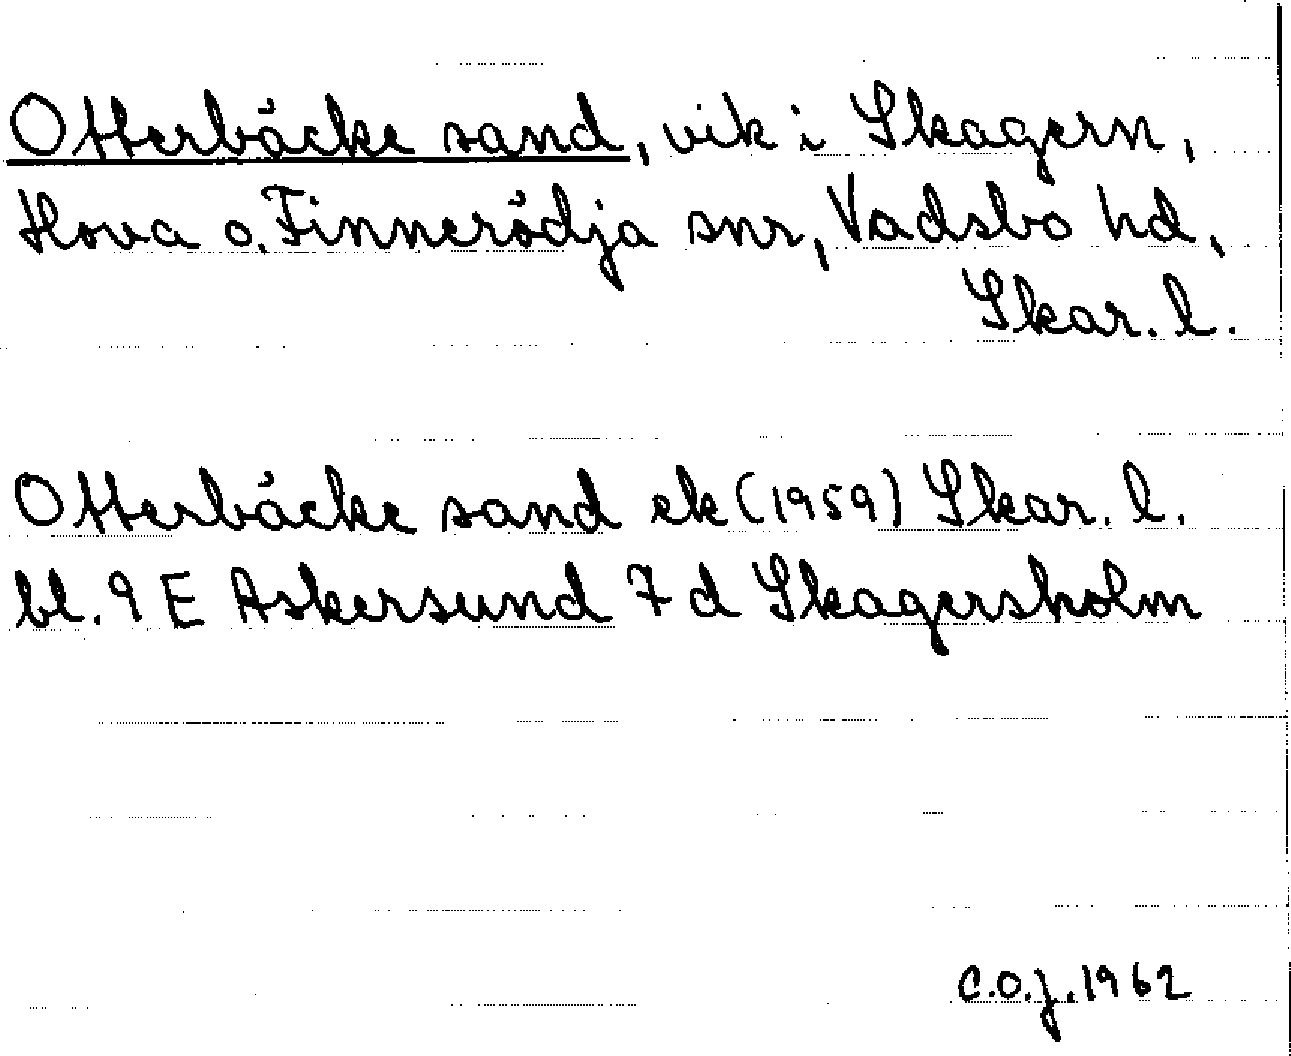 Otterbäcke sand, vik i Skagern,
Hova o. Finnerödja snr, Vadsbo hd,
Skar. l.
Otterbäcke sand ek (1959) Skar. l.
bl. 9 E Askersund 7 d Skagersholm
C.O.J. 1962